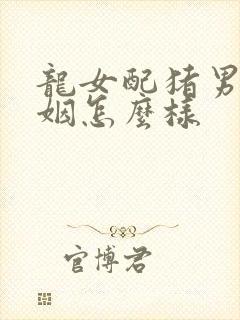 龍女配猪男
姻怎麼樣
官博君